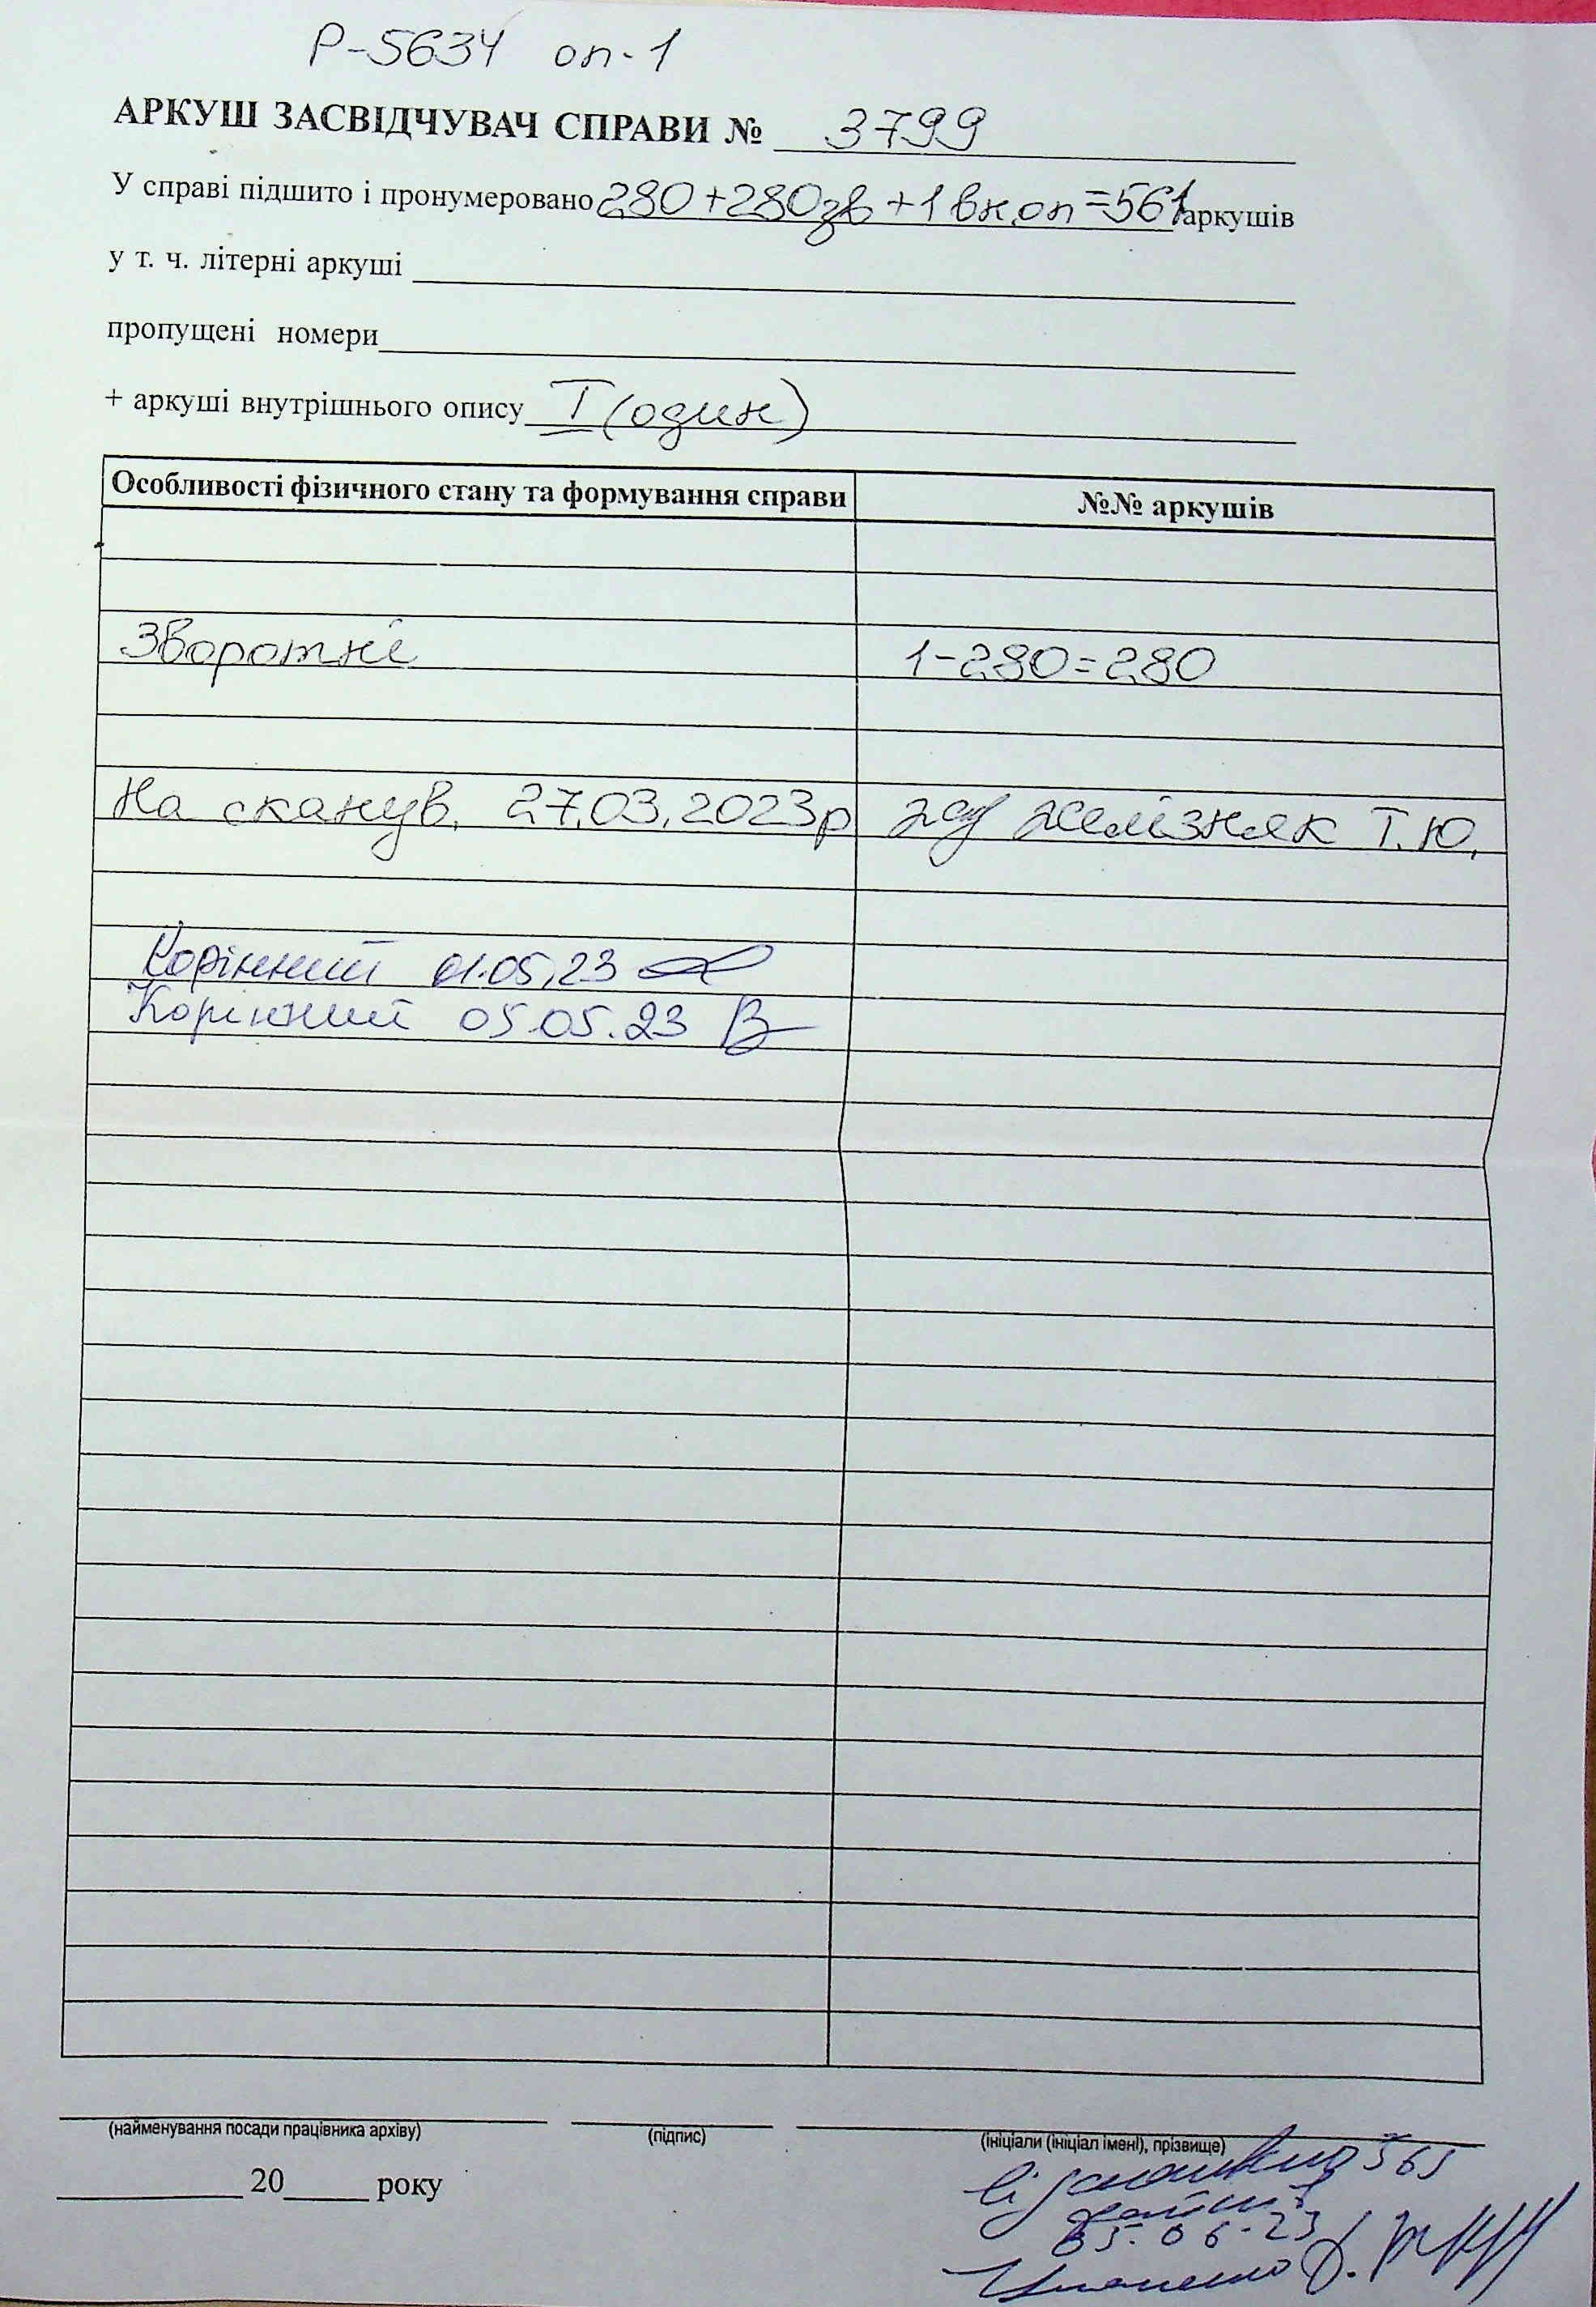 Р-5634 оп-1
АРКУШ ЗАСВІДЧУВАЧ СПРАВИ № 3799
У справі підшито і пронумеровано 280+280зв+1 вн.оп=561 аркушів
у т. ч. літерні аркуші
пропущені номери
+ аркуші внутрішнього опису I (один)
Особливості фізичного стану та формування справи №№ аркушів
Зворотні 1-280=280
На сканув. 27.03.2023р Желізняк Т.Ю.
Корінний 01.05.23
Корінний 05.05.23
(найменування посади працівника архіву) (підпис) (ініціали (ініціал імені), прізвище)
20 року
Відскановано 565
05.06.23